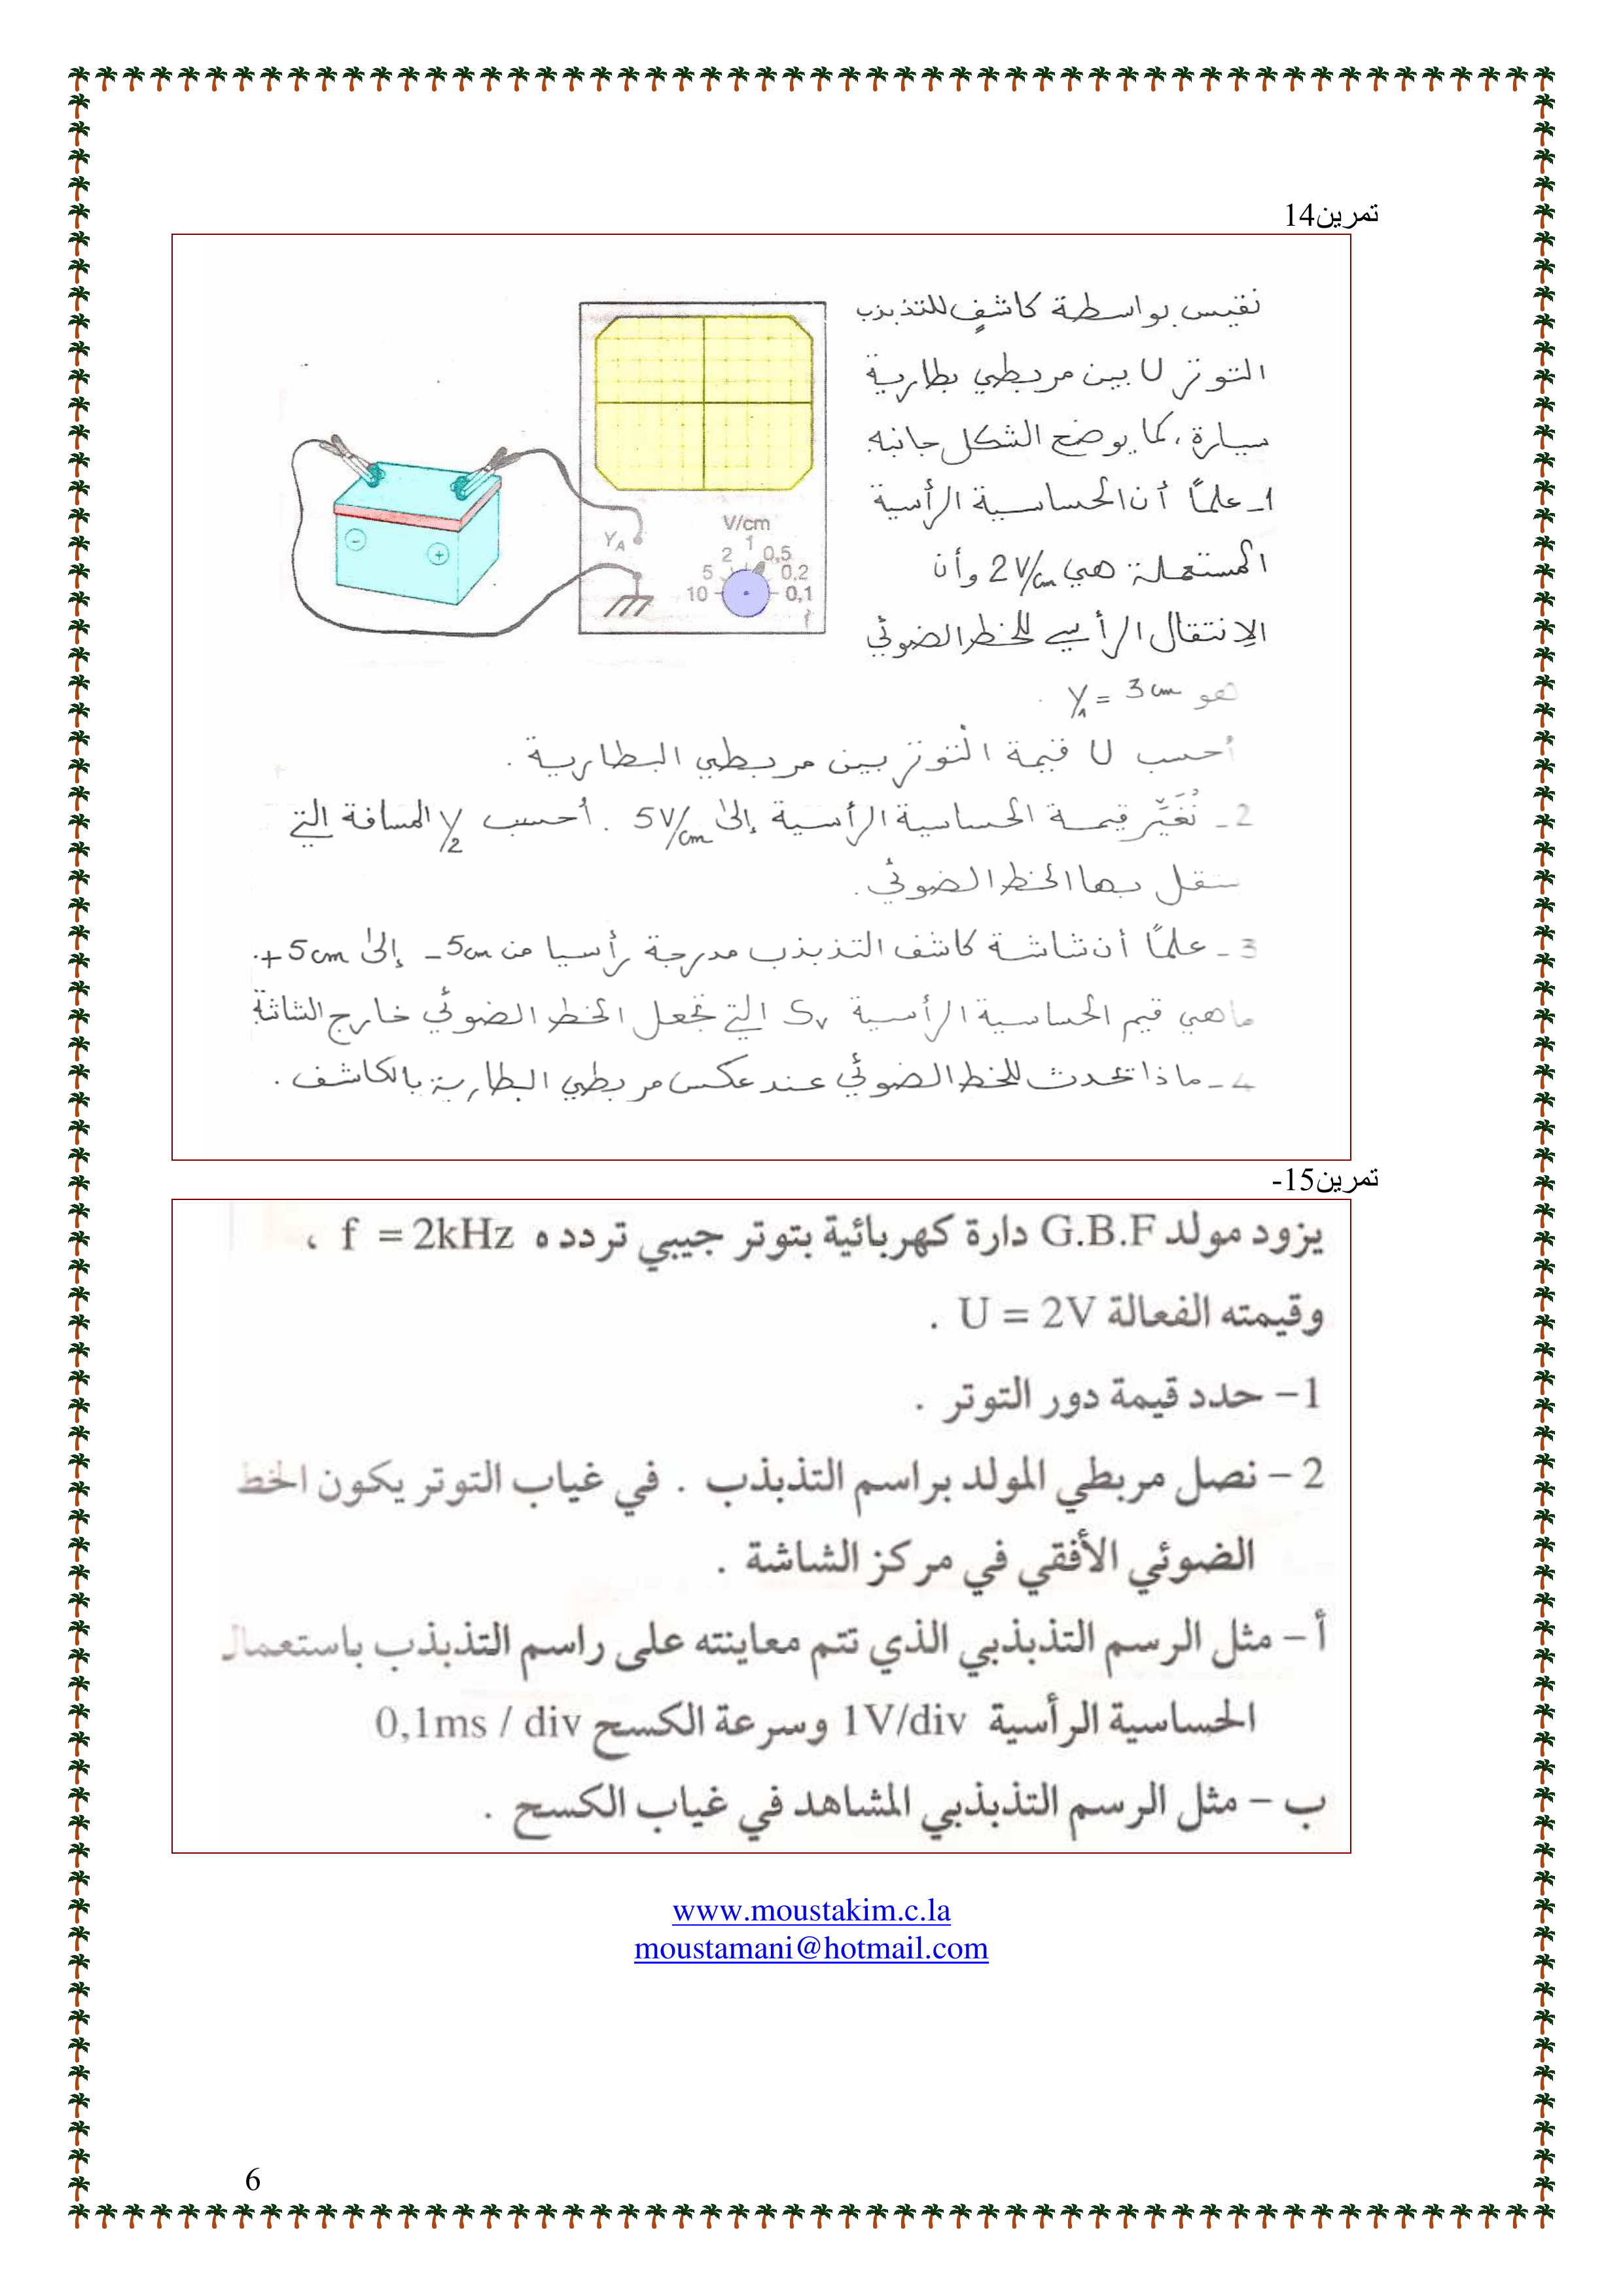 تمرين14
نقيس بواسطة كاشف للتذبذب
التوتر U بين مربطي بطارية
سيارة، كما يوضح الشكل جانبه.
1- علماً أن الحساسية الرأسية
المستعملة هي 2V/cm وأن
الإنتقال الرأسي للخط الضوئي
هو y₁ = 3cm .
أحسب U قيمة التوتر بين مربطي البطارية .
2- نُغَيِّر قيمة الحساسية الرأسية إلى 5V/cm . أحسب y₂ المسافة التي
ينتقل بها الخط الضوئي.
3- علماً أن شاشة كاشف التذبذب مدرجة رأسيا من -5cm إلى +5cm.
ماهي قيم الحساسية الرأسية Sv التي تجعل الخط الضوئي خارج الشاشة
4- ماذا يحدث للخط الضوئي عند عكس مربطي البطارية بالكاشف .
V/cm
YA
10 5 2 1 0,5 0,2 0,1
- +
تمرين15-
يزود مولد G.B.F دارة كهربائية بتوتر جيبي تردده f = 2kHz ،
وقيمته الفعالة U = 2V .
1- حدد قيمة دور التوتر .
2 - نصل مربطي المولد براسم التذبذب . في غياب التوتر يكون الخط
الضوئي الأفقي في مركز الشاشة .
أ - مثل الرسم التذبذبي الذي تتم معاينته على راسم التذبذب باستعمال
الحساسية الرأسية 1V/div وسرعة الكسح 0,1ms / div
ب - مثل الرسم التذبذبي المشاهد في غياب الكسح .
www.moustakim.c.la
moustamani@hotmail.com
6